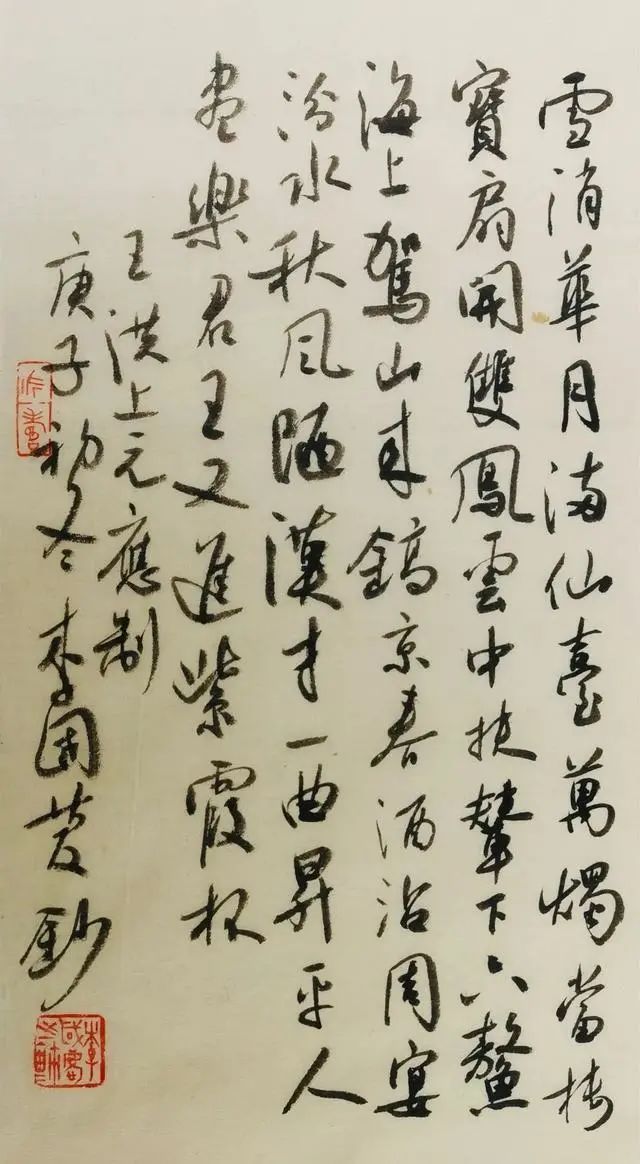 雪消華月滿仙臺萬燭當樓
寶扇開雙鳳雲中扶輦下六鰲
海上駕山來鎬京春酒沾周宴
汾水秋風陋漢才一曲昇平人
盡樂君王又進紫霞杯
王淇上元應制
庚子初冬李鈔